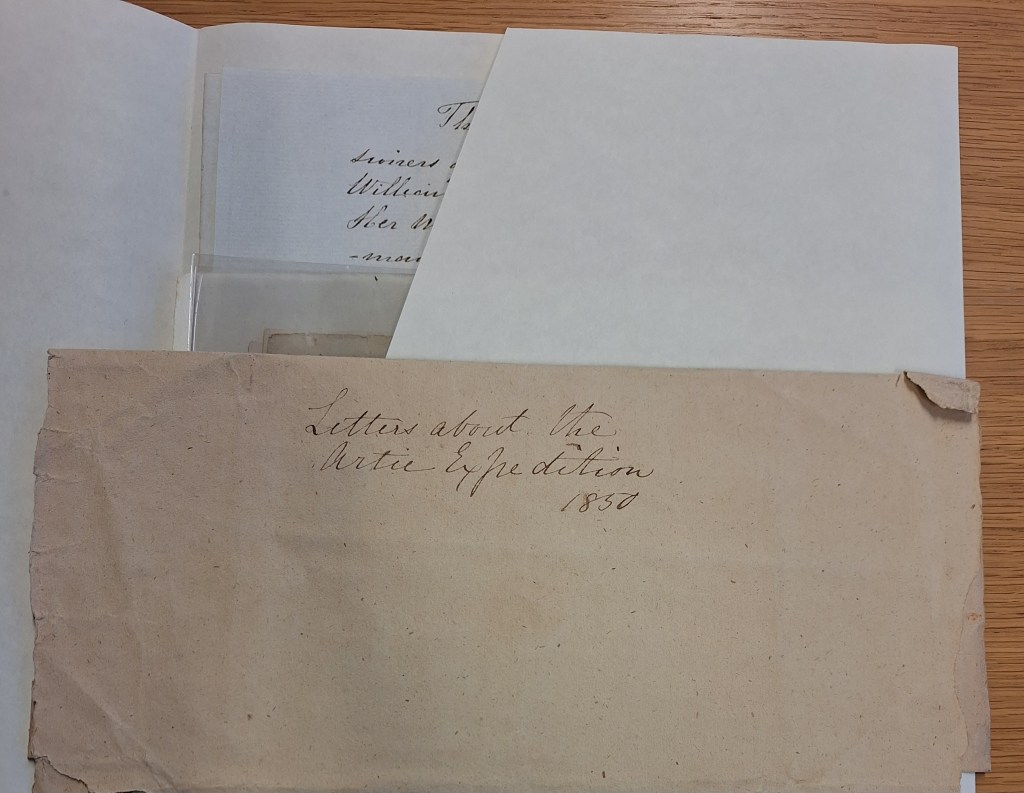 Th
sioners
William
Her
-mai
Letters about the
Artic Expedition
1850